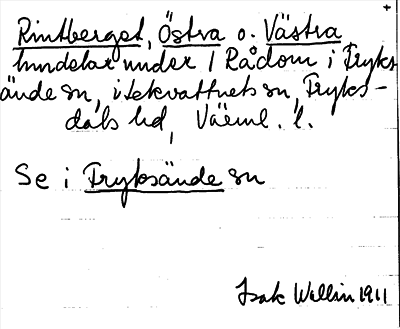 Rintberget, Östra o. Västra
lundelar under 1 Rådom i Fryks-
ände sn, i Lekvattnets sn, Fryks-
dals hd, Värml. l.
Se i Fryksände sn
Isak Wallin 1911